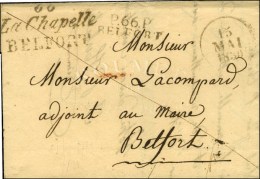 66
La Chapelle
BELFORT
P.66.P
BELFORT
15
MAI
Monsieur
Monsieur Lacompard,
adjoint au Maire
Belfort.